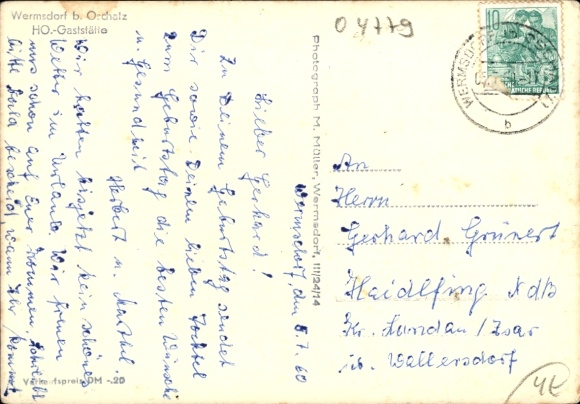 Wermsdorf b. Oschatz
HO.-Gaststätte
04779
10
WERMSDORF
b
Photograph M. Müller, Wermsdorf, III/24/14
Wermsdorf, den 5.7.60
Lieber Gerhard!
Zu Deinem Geburtstag sendet
Dir sowie Deinen lieben Tochter
zum Geburtstag die besten Wünsche
u. Gesundheit
Herbert u. Marthel.
Wir hatten bisjetzt kein schönes
Wetter im Urlaub. Wir freuen
uns schon auf Euer Kommen, schreibt
bitte bald bescheid wann Ihr kommt
Verkaufspreis DM -.20
An
Herrn
Gerhard Grünert
Haidlfing NdB
Kr. Landau / Isar
üb. Wallersdorf
4E